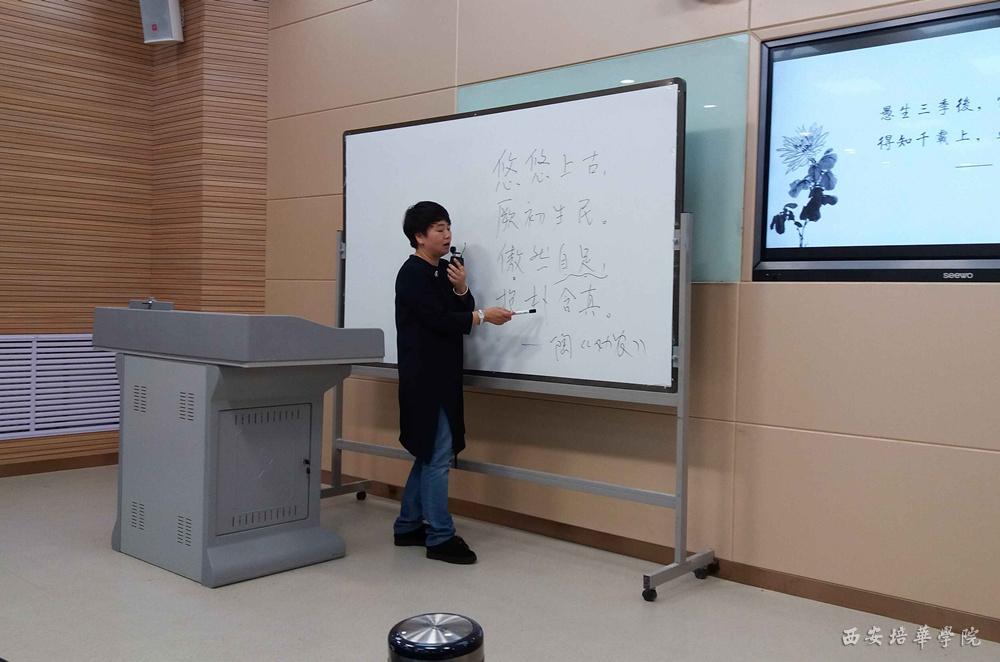 悠悠上古，
厥初生民。
傲然自足，
抱朴含真。
—陶《劝农》
愚生三季後，
得知千載上，
seewo
西安培華學院